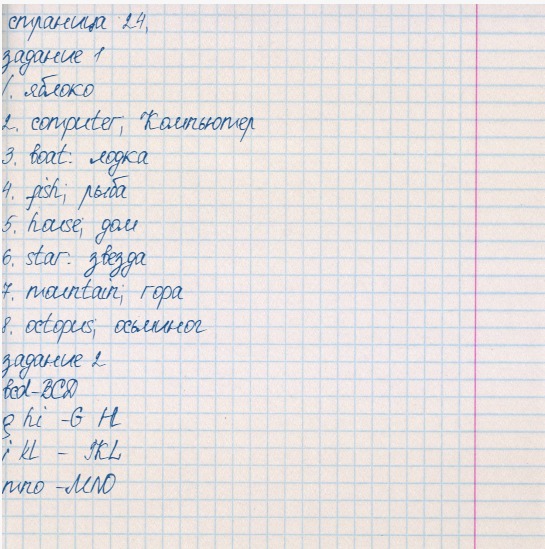 страница 24,
задание 1
1. яблоко
2. computer; Компьютер
3. boat: лодка
4. fish; рыба
5. house; дом
6. star: звезда
7. mountain; гора
8. octopus; осьминог
задание 2
bcd-BCD
g hi -G HI
j kl - JKL
mno -MNO